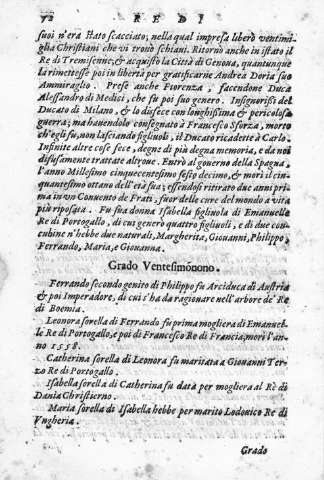 72 R E D I
suoi n'era stato scacciato, nella qual impresa liberò ventimi-
glia Christiani che vi trouò schiaui. Ritornò anche in istato il
Re di Tremisenne, & acquistò la Città di Genoua, quantunque
la rimettesse poi in libertà per gratificarne Andrea Doria suo
Ammiraglio. Prese anche Fiorenza, facendone Duca
Alessandro di Medici, che fu poi suo genero. Insignorissi del
Ducato di Milano, & lo difese con longhissima & pericolosa
guerra; ma hauendolo consegnato à Francesco Sforza, morto
ch'egli fu, non lasciando figliuoli, il Ducato ricadette à Carlo.
Infinite altre cose fece, degne di più degna memoria, e da noi
disusamente trattate altroue. Entrò al gouerno della Spagna,
l'anno Millesimo cinquecentesimo sesto decimo, & morì il cin-
quantesimo ottano dell'età sua; essendosi ritirato due anni pri-
ma in vn Conuento de Frati, fuor delle cure del mondo à vita
più riposata. Fu sua donna Isabella figliuola di Emanuelle
Re di Portogallo, di cui generò quattro figliuoli, e di due con-
cubine n'hebbe due naturali, Margherita, Giouanni, Philippo,
Ferrando, Maria, e Giouanna.
Grado Ventesimonono.
Ferrando secondo genito di Philippo fu Arciduca di Austria
& poi Imperadore, di cui s'ha da ragionare nell'arbore de' Re
di Boemia.
Leonora sorella di Ferrando fu prima mogliera di Emanuel-
le Re di Portogallo, e poi di Francesco Re di Francia; morì l'an-
no 1558.
Catherina sorella di Leonora fu maritata a Giouanni Ter-
zo Re di Portogallo.
Isabella sorella di Catherina fu data per mogliera al Rè di
Dania Christierno.
Maria sorella di Isabella hebbe per marito Lodouico Re di
Vngheria.
Grado